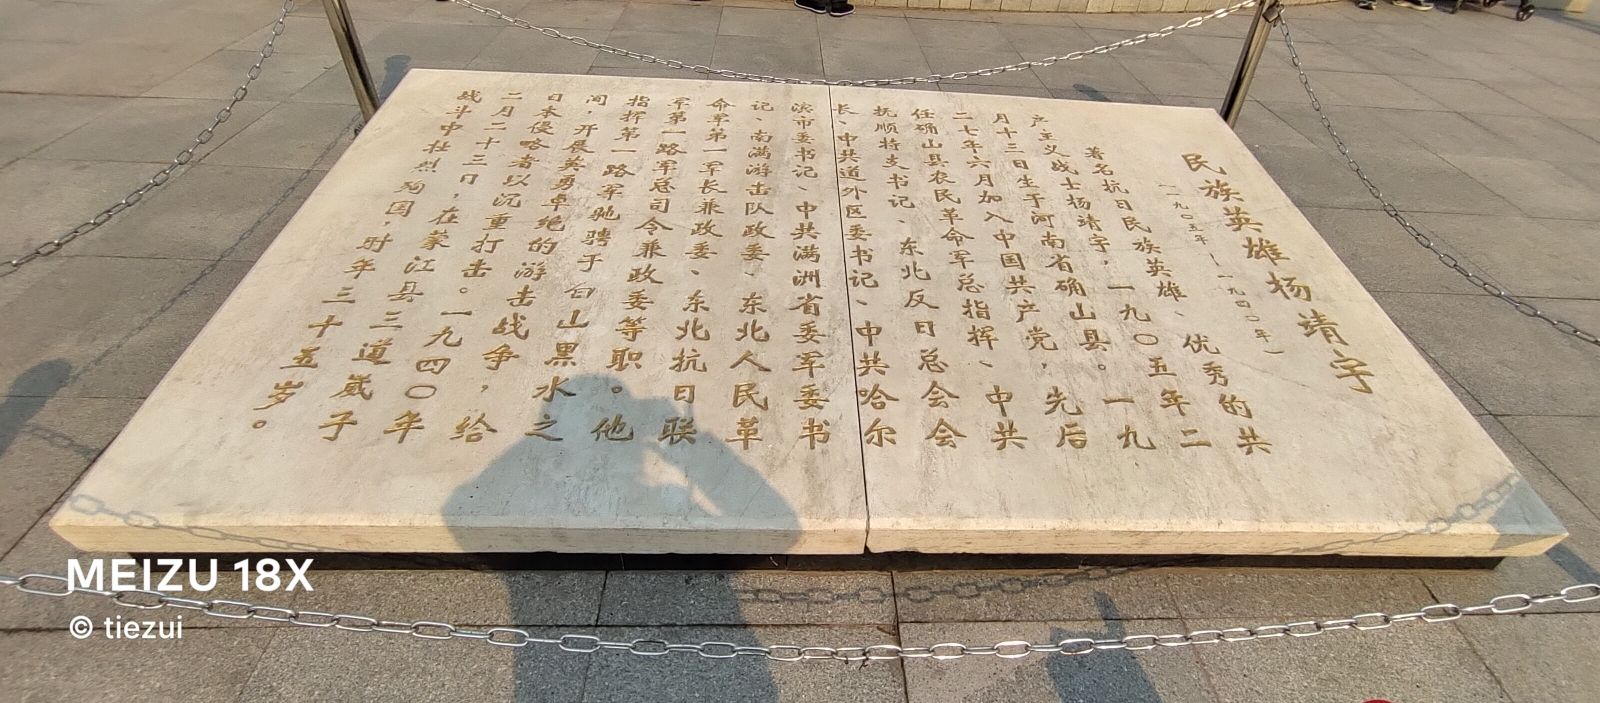 民族英雄杨靖宇
（一九〇五年—一九四〇年）
著名抗日民族英雄、优秀的共
产主义战士杨靖宇，一九〇五年二
月十三日生于河南省确山县。一九
二七年六月加入中国共产党，先后
任确山县农民革命军总指挥、中共
抚顺特支书记、东北反日总会会
长、中共道外区委书记、中共哈尔
滨市委书记、中共满洲省委军委书
记、南满游击队政委、东北人民革
命军第一军长兼政委、东北抗日联
军第一路军总司令兼政委等职。他
指挥第一路军驰骋于白山黑水之
间，开展英勇卓绝的游击战争，给
日本侵略者以沉重打击。一九四〇年
二月二十三日，在蒙江县三道崴子
战斗中壮烈殉国，时年三十五岁。
MEIZU 18X
© tiezui